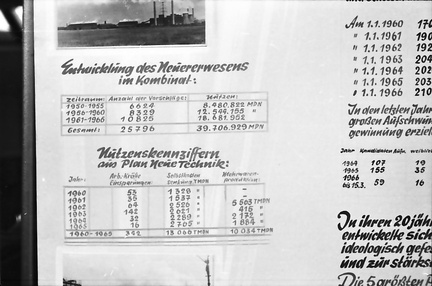 Entwicklung des Neuererwesens
im Kombinat:
Zeitraum: Anzahl der Vorschläge: Nützen:
1950-1955 6624 8.480.822 MDN
1956-1960 8329 12.544.155 "
1961-1965 10825 18.681.952
Gesamt: 25796 39.706.929 MDN
Nützenskennziffern
aus Plan Neue Technik:
Jahr: Arb. Kräfte Einsparungen Selbstkosten Senkung TMDN Mehrwaren- produktion:
1960 53 1320 "
1961 35 1537 "
1962 64 2526 " 5503 TMDN
1963 142 2621 " 415 "
1964 32 2289 " 2172 "
1965 16 2705 " 1884 "
1960-1965 342 13060 TMDN 10034 TMDN
Am 1.1.1960
" 1.1.1961
" 1.1.1962
" 1.1.1963
" 1.1.1964
" 1.1.1965
" 1.1.1966
In den letzten Jahr
großen Aufschwun
gewinnung erziel
Jahr Kandidaten Aufn. weiblich
1964 107 19
1965 155 35
1966
bis 15.3. 59 16
In ihren 20 jäh
entwickelte sich
ideologisch gefe
und zur stärks
Die 5 größten A